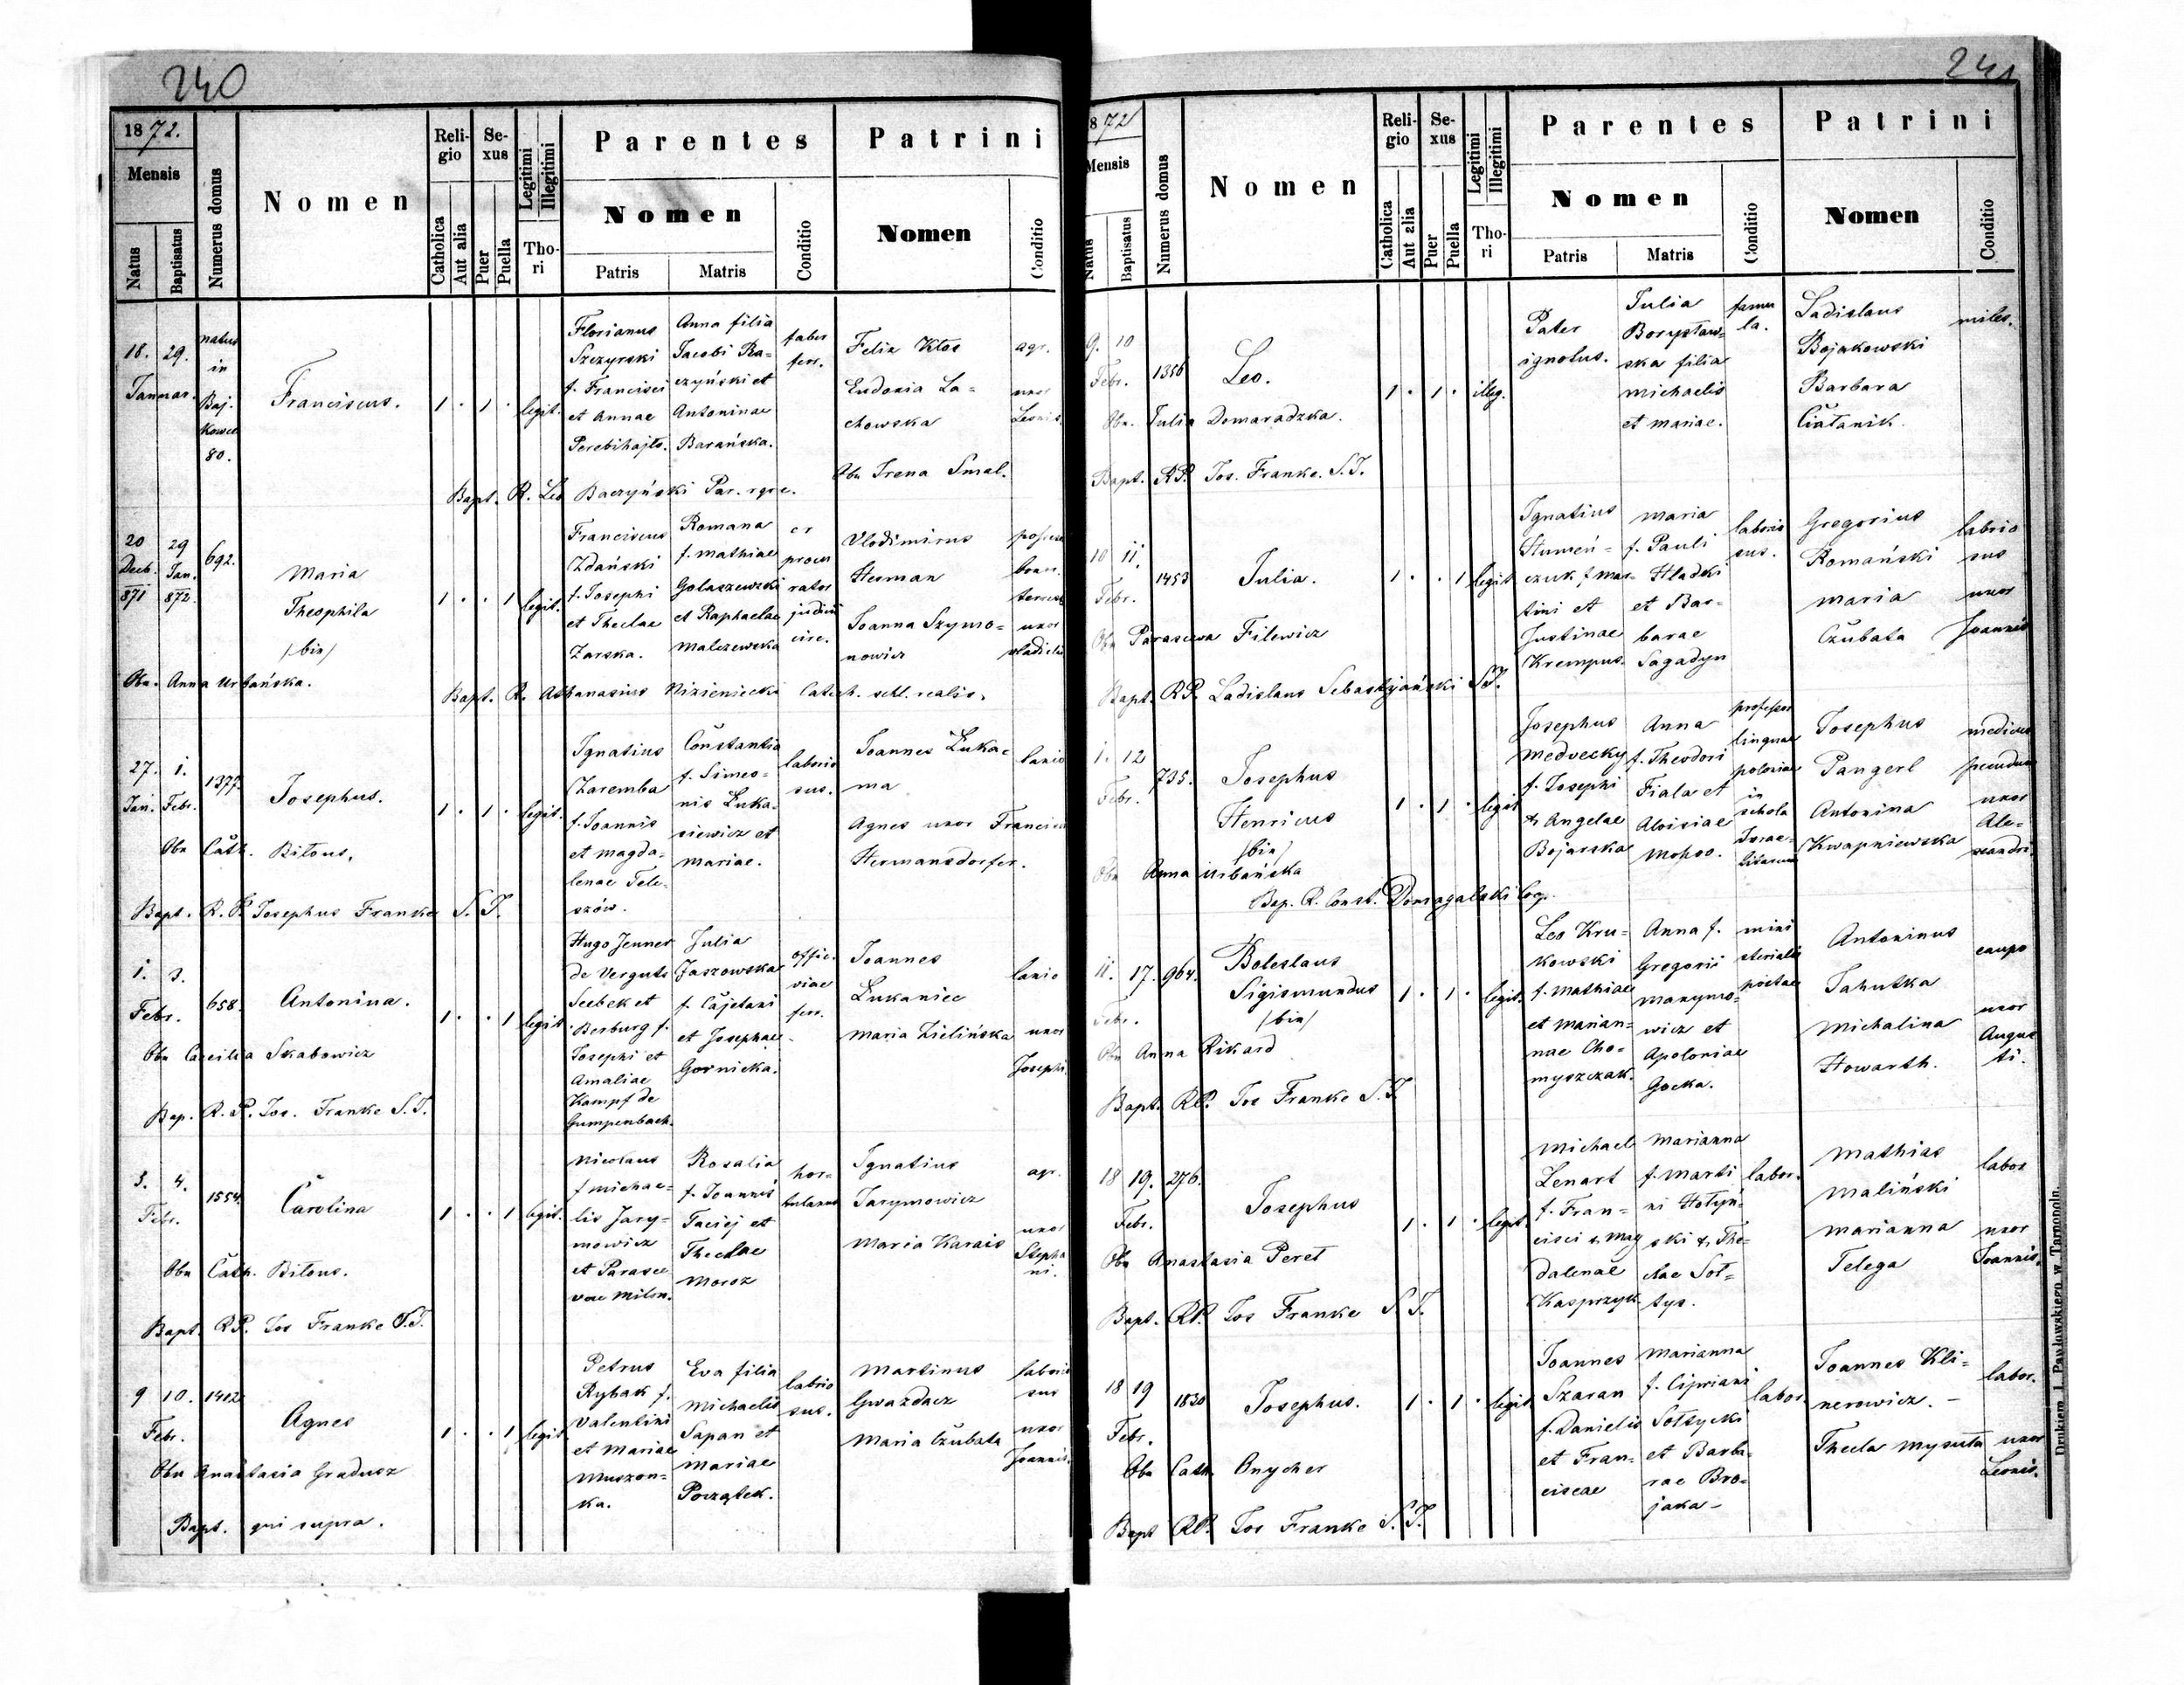 240
1872.
Mensis
Natus
Baptisatus
Numerus domus
Nomen
Religio
Catholica
Aut alia
Sexus
Puer
Puella
Legitimi
Illegitimi
Thori
Parentes
Nomen
Patris
Matris
Conditio
Patrini
Nomen
Conditio
18. 29.
Januar.
natus
in
Baj-
kowce
80.
Franciscus.
1 . 1 . legit.
Florianus
Szczyrski
f. Francisci
et Annae
Perebihajło.
Anna filia
Jacobi Ra-
czyński et
Antoninae
Barańska.
faber
ferr.
Felix Kłos
agr.
Eudoxia La-
chowska
uxor
Leonis.
Obs Irena Smal.
Bapt. R. Leo Baczyński Par. rgr.c.
20 29
Decb. Jan.
871 872.
692.
Maria
Theophila
/bin/
1 . . 1 legit.
Franciscus
Zdański
f. Josephi
et Theclae
Zarska.
Romana
f. Mathiae
Golaszewski
et Raphaelae
Malczewska
procu
rator
judicii
circ.
Vlodimirus
Herman
Joanna Szymo-
nowicz
uxor
Obs. Anna Urbańska.
Bapt. R. Athanasius Nizieniecki Catech. schl. realis.
27. 1.
Jan. Febr.
1377.
Josephus.
1 . 1 . legit.
Ignatius
Zaremba
f. Joannis
et Magda-
lenae Tele-
szów.
Constantia
f. Simeo-
nis Luka-
siewicz et
Mariae.
laborio
sus.
Joannes Łuka-
ma
lanio
Agnes uxor Francisci
Hermansdorfer.
Obs Cath. Biłous.
Bapt. R. P. Josephus Franke S. J.
1. 3.
Febr.
658.
Antonina.
1 . . 1 legit
Hugo Jenner
de Verguts
Seebek et
Berburg f.
Josephi et
Amaliae
Kampf de
Gumpenbach.
Julia
Jaszowska
f. Cajetani
et Josephae
Gornicka.
offic.
viae
ferr.
Joannes
Lukaniec
lanio
Maria Zielińska
uxor
Josephi.
Obs Caecilia Skabowicz
Bap. R. P. Jos. Franke S. J.
3. 4.
Febr.
1554.
Carolina
1 . . 1 legit.
Nicolaus
f Michae-
lis Jary-
mowicz
et Parasce
vae Miln.
Rosalia
f. Joannis
Taciej et
Theclae
Moroz
hor-
tulanus
Ignatius
Jarymowicz
agr.
Maria Karais
uxor
Stepha
ni.
Obs Cath. Biłous.
Bapt. RP. Jos Franke S.J.
9 10. 1402
Febr.
Agnes
1 . . 1 legit
Petrus
Rybak f.
Valentini
et Mariae
Muszon-
ka.
Eva filia
Michaelis
Sapan et
Mariae
Początek.
labrio
sus.
Martinus
Gwazdacz
laborio
sus
Maria Czubata
uxor
Joannis.
Obs Anastasia Gradusz
Bapt. qui supra.
241
1872
Mensis
Natus
Baptisatus
Numerus domus
Nomen
Religio
Catholica
Aut alia
Sexus
Puer
Puella
Legitimi
Illegitimi
Thori
Parentes
Nomen
Patris
Matris
Conditio
Patrini
Nomen
Conditio
9. 10
Febr.
1356
Leo.
1 . 1 . illeg.
Pater
ignotus.
Julia
Borysław-
ska filia
Michaelis
et Mariae.
famu
la.
Ladislaus
Bojakowski
miles.
Barbara
Ciałanik.
Obs. Julia Domaradzka.
Bapt. RP. Jos. Franke. S.J.
10 11.
Febr.
1453
Julia.
1 . . 1 legit
Ignatius
Humeń-
czuk f. Mar-
tini et
Justinae
Krempus.
Maria
f. Pauli
Hladki
et Bar-
barae
Sagadyn
laborio
sus.
Gregorius
Romański
labrio
sus
Maria
Czubata
uxor
Joannis
Obs Parascewa Filewicz
Bapt. RP. Ladislaus Sebastyański S.J.
1. 12
Febr.
735.
Josephus
Henricus
/bin/
1 . 1 . legit
Josephus
Medvecky
f. Josephi
& Angelae
Bojarska
Anna
f. Theodori
Fiala et
Aloisiae
Mohoo.
professor
linguae
poloniae
in
schola
Israe-
litarum
Josephus
Pangerl
medicus
Antonina
Kwapniewska
uxor
Ale-
xandri.
Obs Anna Urbańska
Bap. R. Const. Domagalski Coop.
11. 17. 964.
Febr.
Boleslaus
Sigismundus
/bin/
1 . 1 . legit.
Leo Kru-
kowski
f. Mathiae
et Marian-
nae Cho-
myszczak.
Anna f.
Gregorii
Manymo-
wicz et
Apoloniae
Gocka.
mini
sterialis
Antoninus
Jahutka
caupo
Michalina
Howarth.
uxor
Augus
ti.
Obs Anna Rikard
Bapt. RP. Jos Franke S.J.
18 19. 276.
Febr.
Josephus
1 . 1 . legit.
Michael
Lenart
f. Fran-
cisci & Mag
dalenae
Kasprzyk.
Marianna
f. Marti
ni Hołyń-
ski & The-
clae Soł-
tys.
labor.
Mathias
Maliński
labor
Marianna
Telega
uxor
Joannis.
Obs Anastasia Peret
Bapt. RP. Jos Franke S J.
18 19 1830
Febr.
Josephus.
1 . 1 . legit
Joannes
Szaran
f. Danielis
et Fran-
ciscae
Marianna
f. Cipriani
Sołtycki
et Barba-
rae Bro-
jaka-
labor.
Joannes Kli-
nerowicz. -
labor.
Thecla Mysuta
uxor
Leonis.
Obs Cath. Onycher
Bapt RP. Jos Franke S.J.
Drukiem J. Pawłowskiego w Tarnopolu.